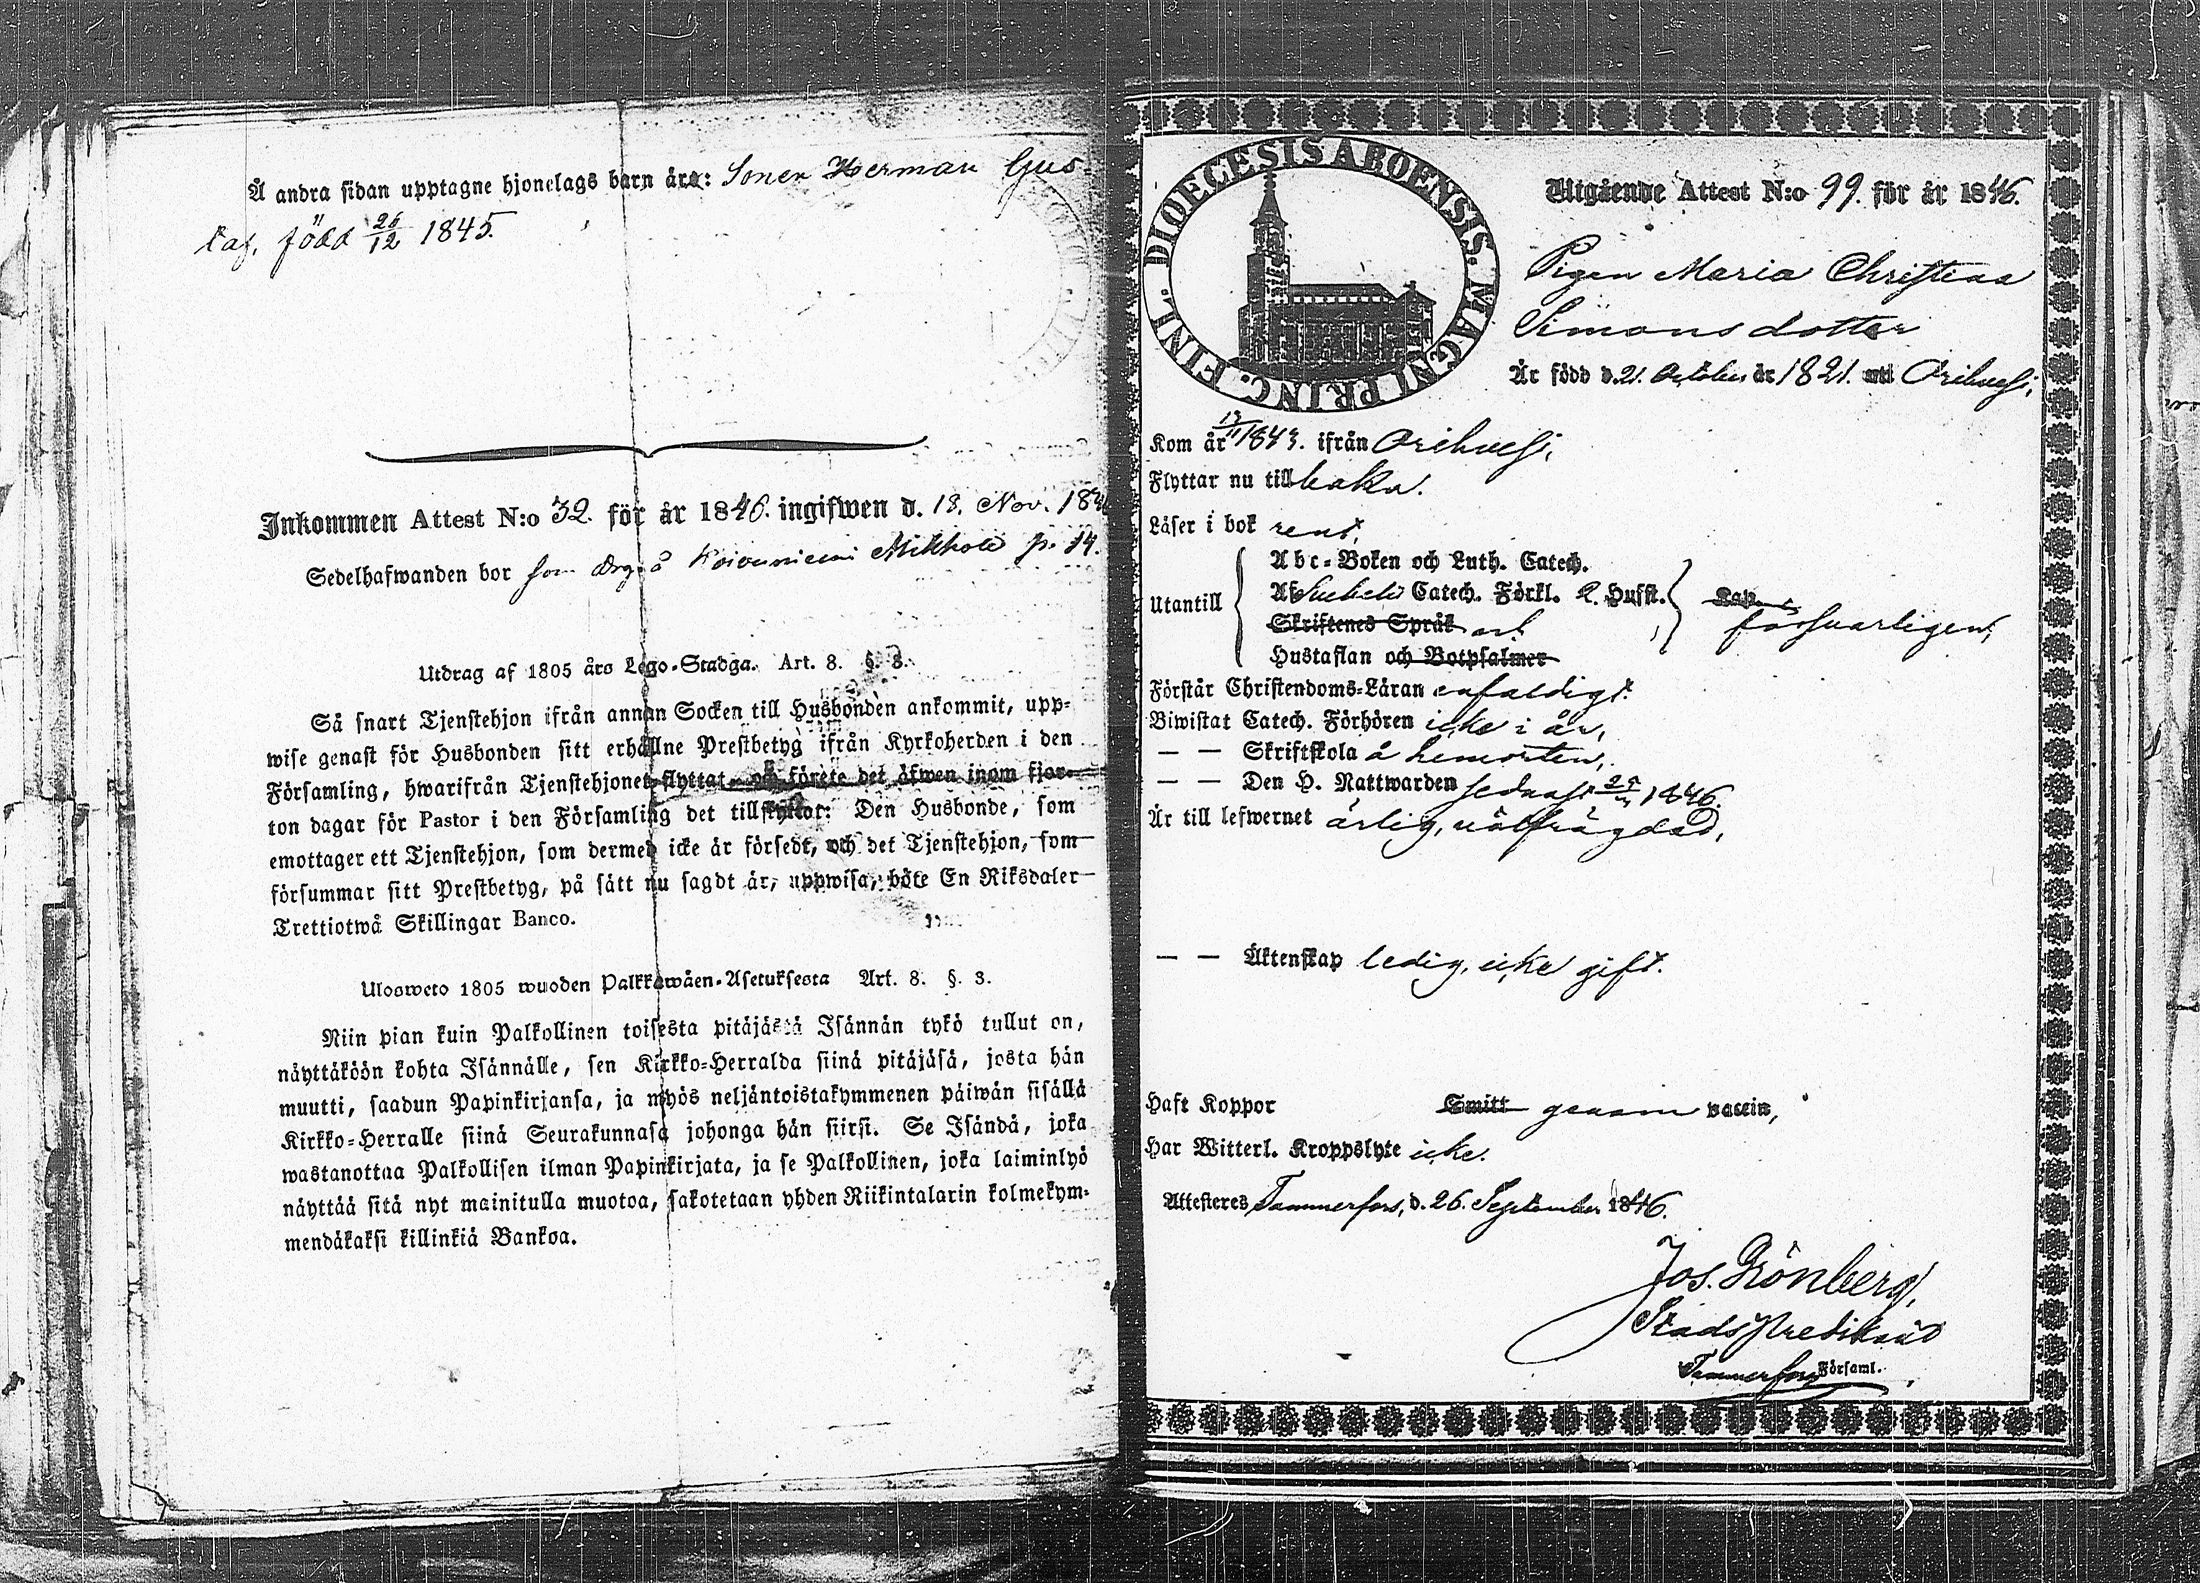 Å andra sidan upptagne hjonelags barn äro: Sonen Herman Gus-
taf, född 26/12 1845.
Inkommen Attest N:o 32. för år 1846. ingifwen d. 18. Nov. 184
Sedelhafwanden bor som Drg å Koivuniemi Mikkola p. 14.
Utdrag af 1805 års Lego-Stadga. Art. 8. §. 3.
Så snart Tjenstehjon ifrån annan Socken till Husbonden ankommit, upp-
wise genast för Husbonden sitt erhållne Prestbetyg ifrån Kyrkoherden i den
Församling, hwarifrån Tjenstehjonet flyttat, och förete det äfwen inom fjor-
ton dagar för Pastor i den Församling det tillflyttar: Den Husbonde, som
emottager ett Tjenstehjon, som dermed icke är försedt, och det Tjenstehjon, som
försummar sitt Prestbetyg, på sätt nu sagdt är, uppwisa, böte En Riksdaler
Trettiotwå Skillingar Banco.
Ulosweto 1805 wuoden Palkkawäen-Asetuksesta Art. 8. §. 3.
Niin pian kuin Palkollinen toisesta pitäjästä Isännän tykö tullut on,
näyttäköön kohta Isännälle, sen Kirkko-Herralda siinä pitäjäsä, josta hän
muutti, saadun Papinkirjansa, ja myös neljäntoistakymmenen päiwän sisällä
Kirkko-Herralle siinä Seurakunnasa johonga hän siirsi. Se Isändä, joka
wastanottaa Palkollisen ilman Papinkirjata, ja se Palkollinen, joka laiminlyö
näyttää sitä nyt mainitulla muotoa, sakotetaan yhden Riikintalarin kolmekym-
mendäkaksi killinkiä Bankoa.
DIOECESIS ABOENSIS. MAGNI PRINC. FINL.
Utgående Attest N:o 99. för år 1846.
Pigan Maria Christina
Simonsdotter
Är född d. 21. October år 1821. uti Orihvesi,
Kom år 17/11 1843. ifrån Orihvesi,
Flyttar nu till baka.
Läser i bok rent,
Abc-Boken och Luth. Catech.
Utantill Af Svebelii Catech. Förkl. 2. Husst. Kap.
Skriftenes Språk försvarligen,
Hustaflan och Botpsalmer
Förstår Christendoms-Läran enfaldigt.
Biwistat Catech. Förhören icke i år,
— — Skriftskola å hemorten,
— — Den H. Nattwarden sednast 1846.
Är till lefwernet ärlig, välfrägdad,
— — Äktenskap ledig, icke gift.
Haft Koppor Smitt genom vaccin,
Har Witterl. Kroppslyte icke.
Attesteres Tammerfors, d. 26. September 1846.
Jos. Grönberg,
Stadspredikant
Tammerfors Församl.